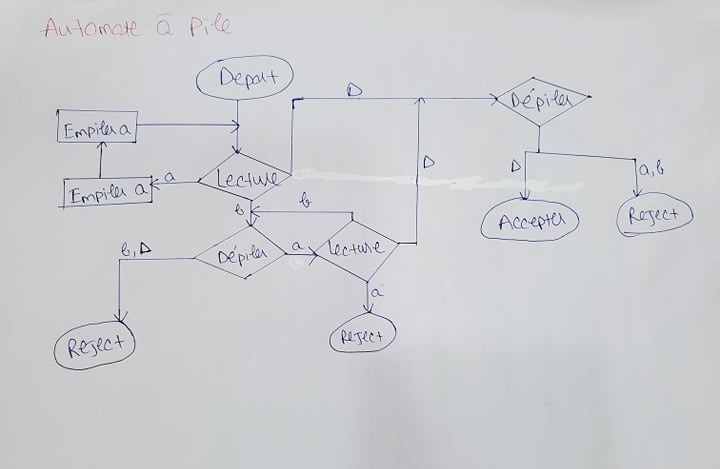 Automate à Pile
Départ
Δ
Dépiler
Empiler a
Lecture
a
Empiler a
Δ
a,b
Δ
b
b
Accepter
Reject
b,Δ
Dépiler
a
Lecture
a
Reject
Reject